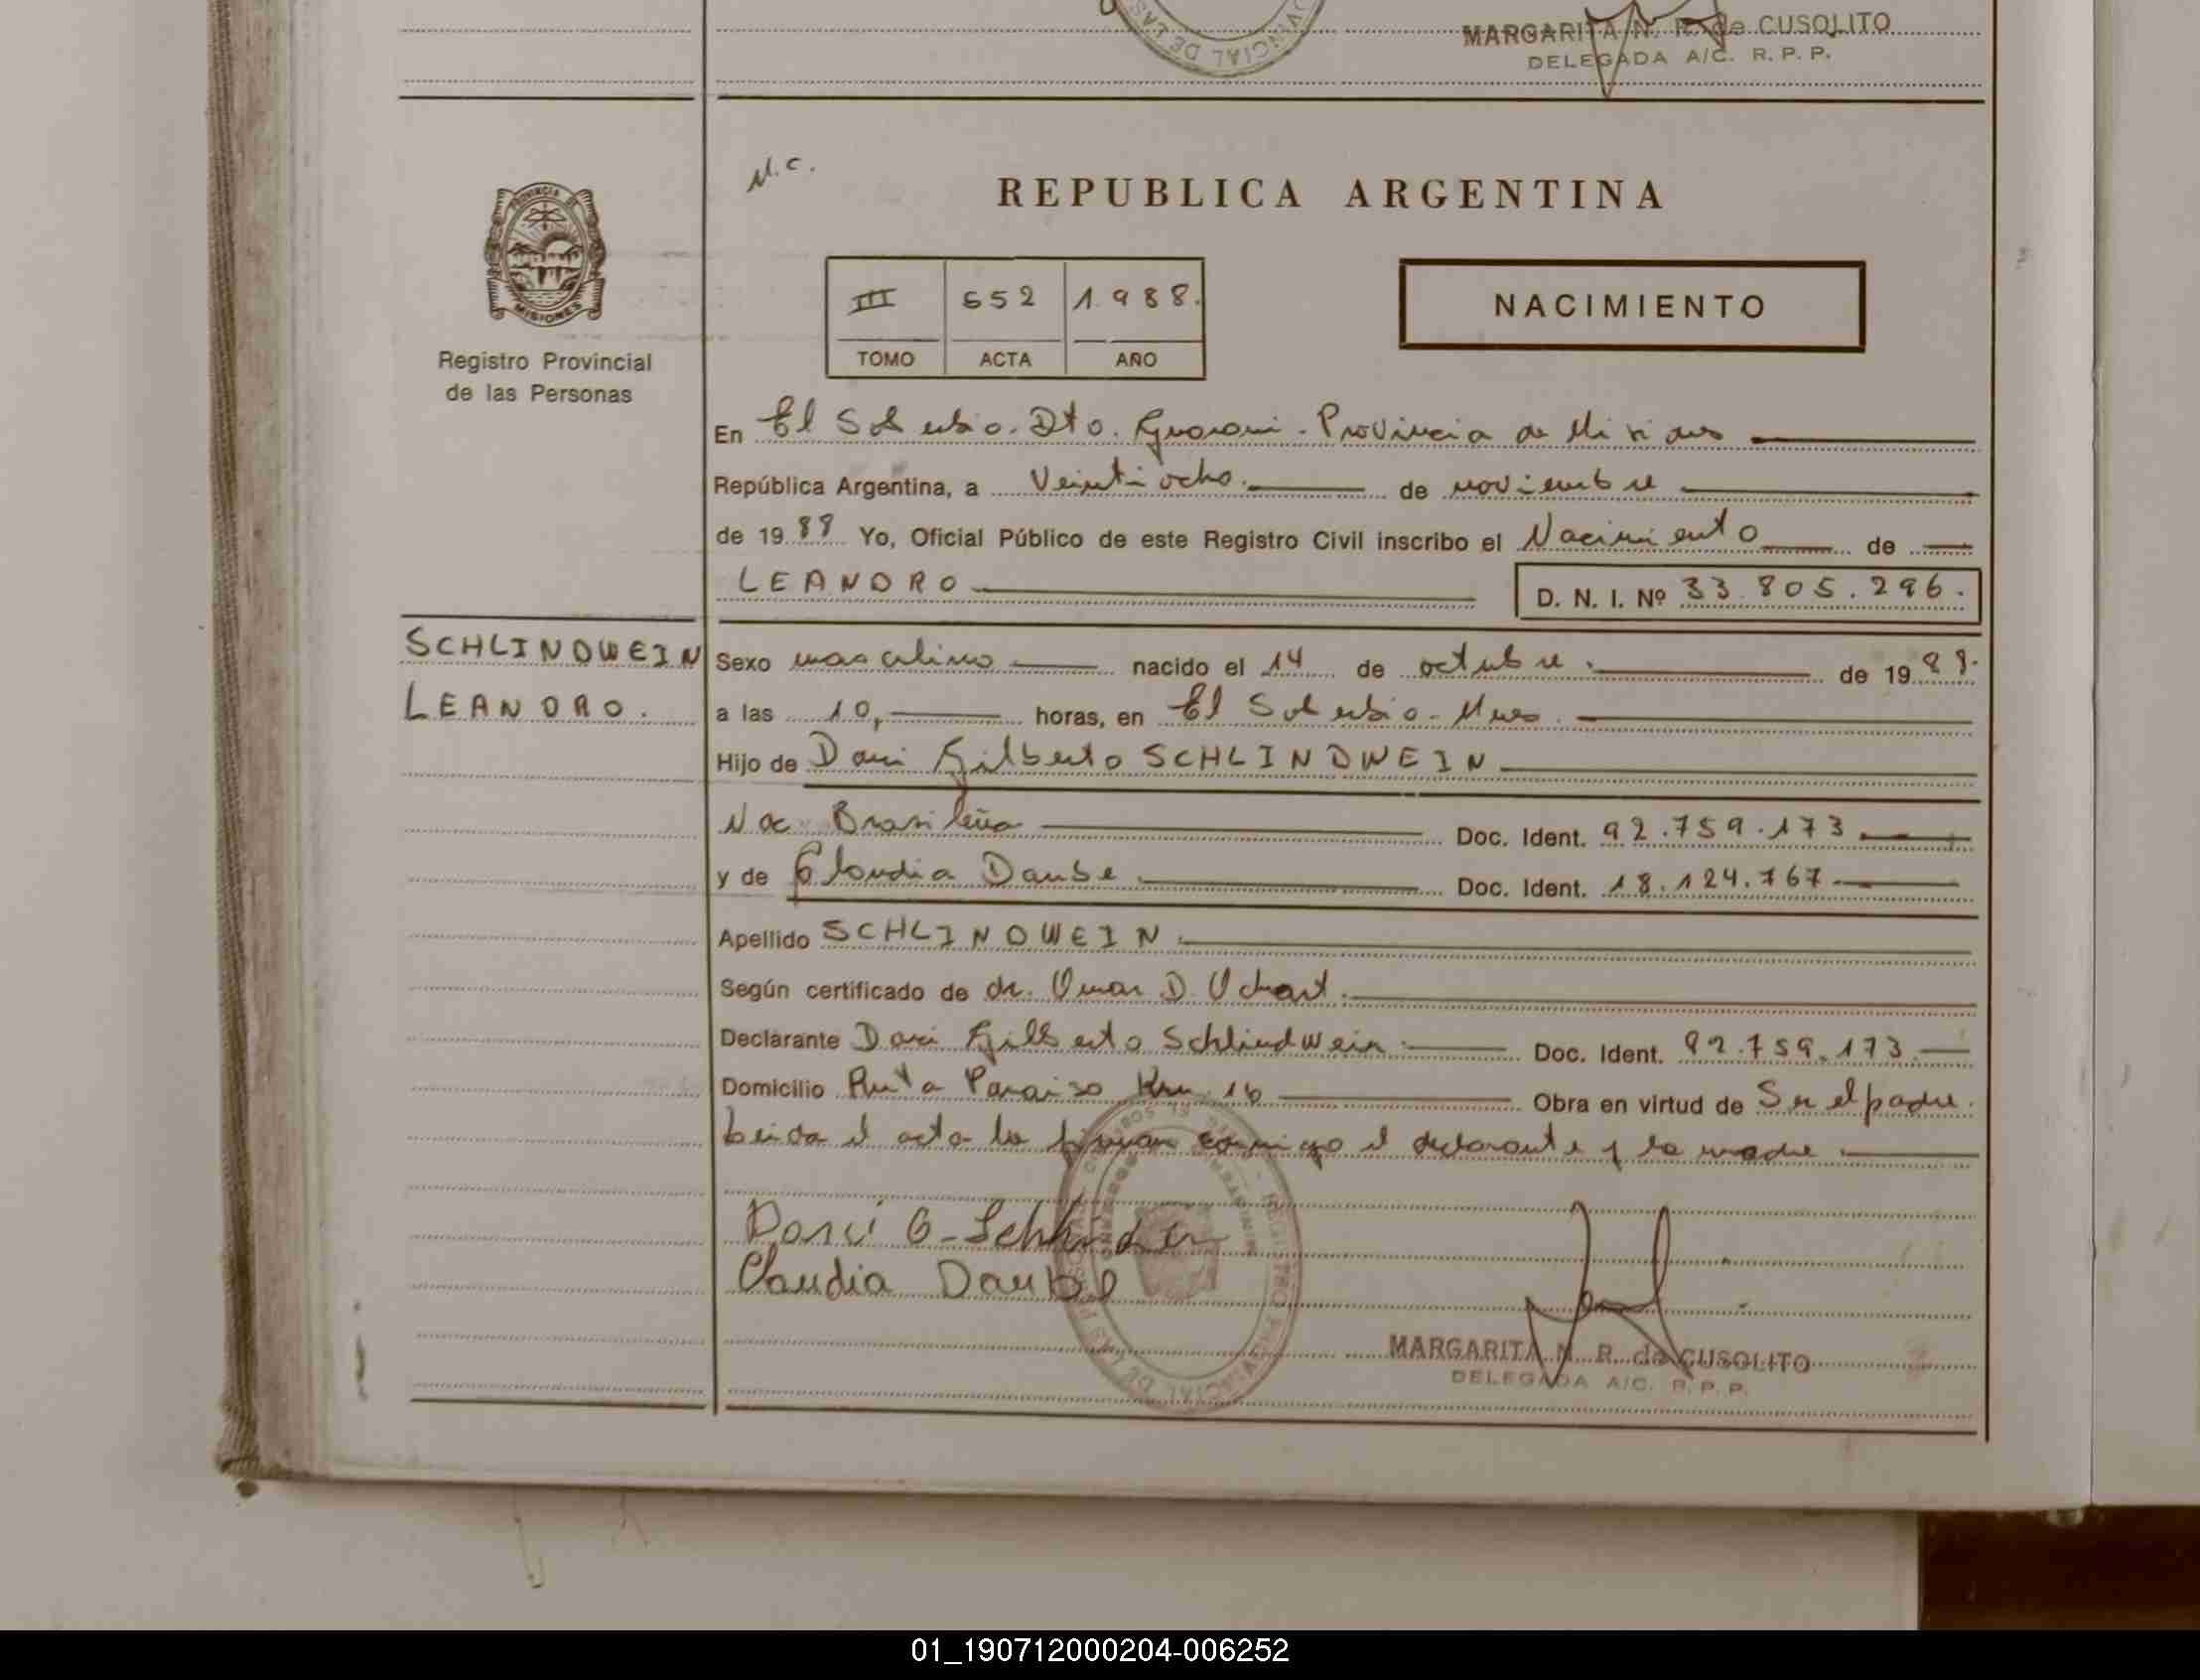 MARGARITA N. R. de CUSOLITO
DELEGADA A/C. R. P. P.
N.C.
REPUBLICA ARGENTINA
PROVINCIA DE
MISIONES
III 652 1.988.
TOMO ACTA AÑO
NACIMIENTO
Registro Provincial
de las Personas
En El Soberbio. Dto. Guarani - Provincia de Misiones
República Argentina, a Veintiocho. de noviembre
de 1988 Yo, Oficial Público de este Registro Civil inscribo el Nacimiento de
LEANDRO D. N. I. Nº 33.805.296.
SCHLINDWEIN
LEANDRO.
Sexo masculino nacido el 14 de octubre. de 1988.
a las 10, horas, en El Soberbio - Mnes.
Hijo de Darci Gilberto SCHLINDWEIN
Nac. Brasileña Doc. Ident. 92.759.173
y de Claudia Daube Doc. Ident. 18.124.767
Apellido SCHLINDWEIN.
Según certificado de dr. Omar D. Uchart.
Declarante Darci Gilberto Schlindwein. Doc. Ident. 92.759.173
Domicilio Ruta Paraiso Km. 16 Obra en virtud de Ser el padre.
Leida el acta la firman conmigo el declarante y la madre.
Darci G-Schlindwein
Claudia Daube
MARGARITA N. R. de CUSOLITO
DELEGADA A/C. R. P. P.
01_190712000204-006252